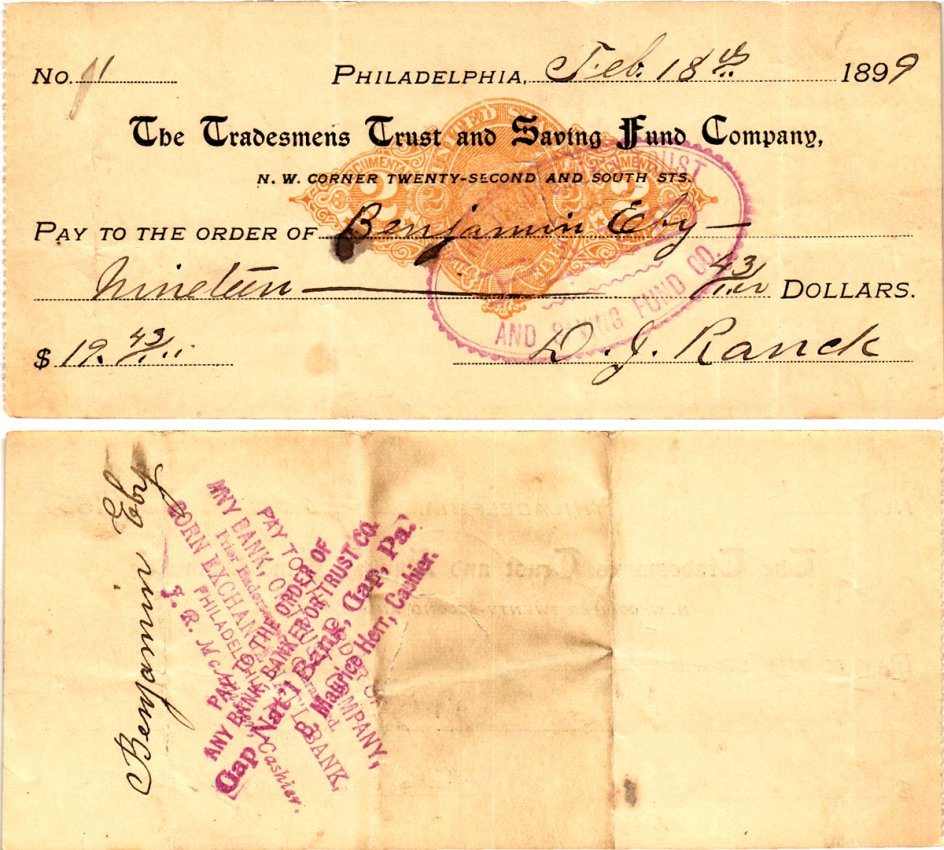 No. 11 PHILADELPHIA, Feb. 18th 1899
The Tradesmens Trust and Saving Fund Company,
N. W. CORNER TWENTY-SECOND AND SOUTH STS.
UNITED STATES
DOCUMENTARY
2 2
PAY TO THE ORDER OF Benjamin Eby
Nineteen 43/100 DOLLARS.
TRUST
AND SAVING FUND CO
$ 19.43/100
D. J. Ranck
Benjamin Eby
PAY TO
ANY BANK, OR ORDER OF
TRUST COMPANY,
Prior Endorsements
CORN EXCHANGE NAT'L BANK,
PHILADELPHIA
Cashier.
PAY TO THE ORDER OF
ANY BANK, BANKER OR TRUST CO.
Gap Nat'l Bank, Gap, Pa.
Maurice Herr, Cashier.